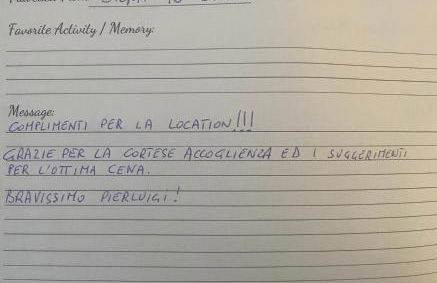 Favorite Activity / Memory:
Message:
COMPLIMENTI PER LA LOCATION!!!
GRAZIE PER LA CORTESE ACCOGLIENZA ED I SUGGERIMENTI
PER L'OTTIMA CENA.
BRAVISSIMO PIERLUIGI!